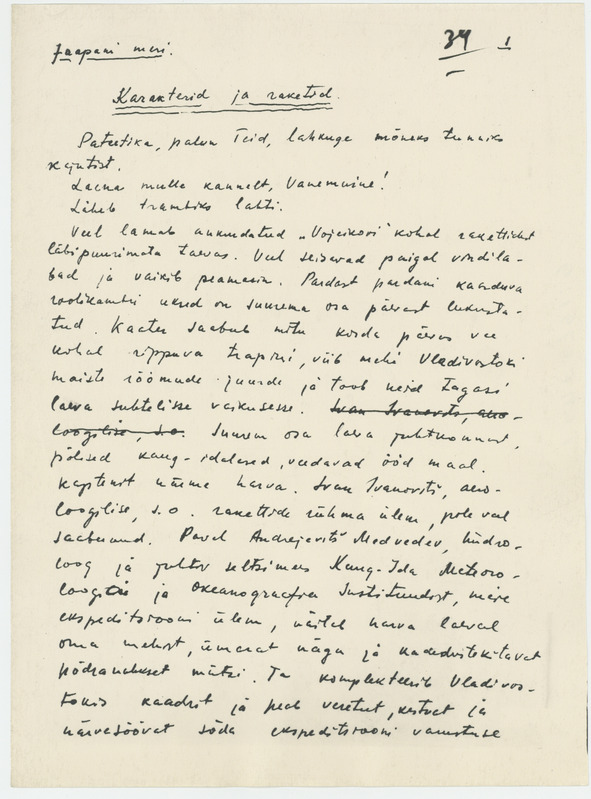 Jaapani meri.
34 1
Karakterid ja raketid.
Pateetika, palun Teid, lahkuge mõneks tunniks
kajutist.
Laena mulle kannelt, Vanemuine!
Läheb trambiks lahti.
Veel lamab ankrudatud „Vojeikovi" kohal rakettidest
läbipuurimata taevas. Veel seisavad paigal vindila-
bad ja vaikib peamasin. Pardast pardani kaarduva
roolikambri uksed on suurema osa päevast lukusta-
tud. Kaater saabub mitu korda päevas vee
kohal rippuva trapini, viib mehi Vladivostoki
maiste rõõmude juurde ja toob neid tagasi
laeva suhtelisse vaikusesse. Ivan Ivanovitš, aero-
loogilise, s.o. Suurem osa laeva juhtkonnast,
põlised kaug-idalased, veedavad ööd maal.
Kaptenit näeme harva. Ivan Ivanovitš, aero-
loogilise, s.o. rakettide rühma ülem, pole veel
saabunud. Pavel Andrejevitš Medvedev, hüdro-
loog ja juhtiv seltsimees Kaug-Ida Meteoro-
loogia ja Okeanograafia Instituudist, meie
ekspeditsiooni ülem, näitab harva laeval
oma mehist, ümarat nägu ja kadedusttekitavat
põdranahkset mütsi. Ta komplekteerib Vladivos-
tokis kaadrit ja peab veretut, kestvat ja
närvesöövat sõda ekspeditsiooni varustuse